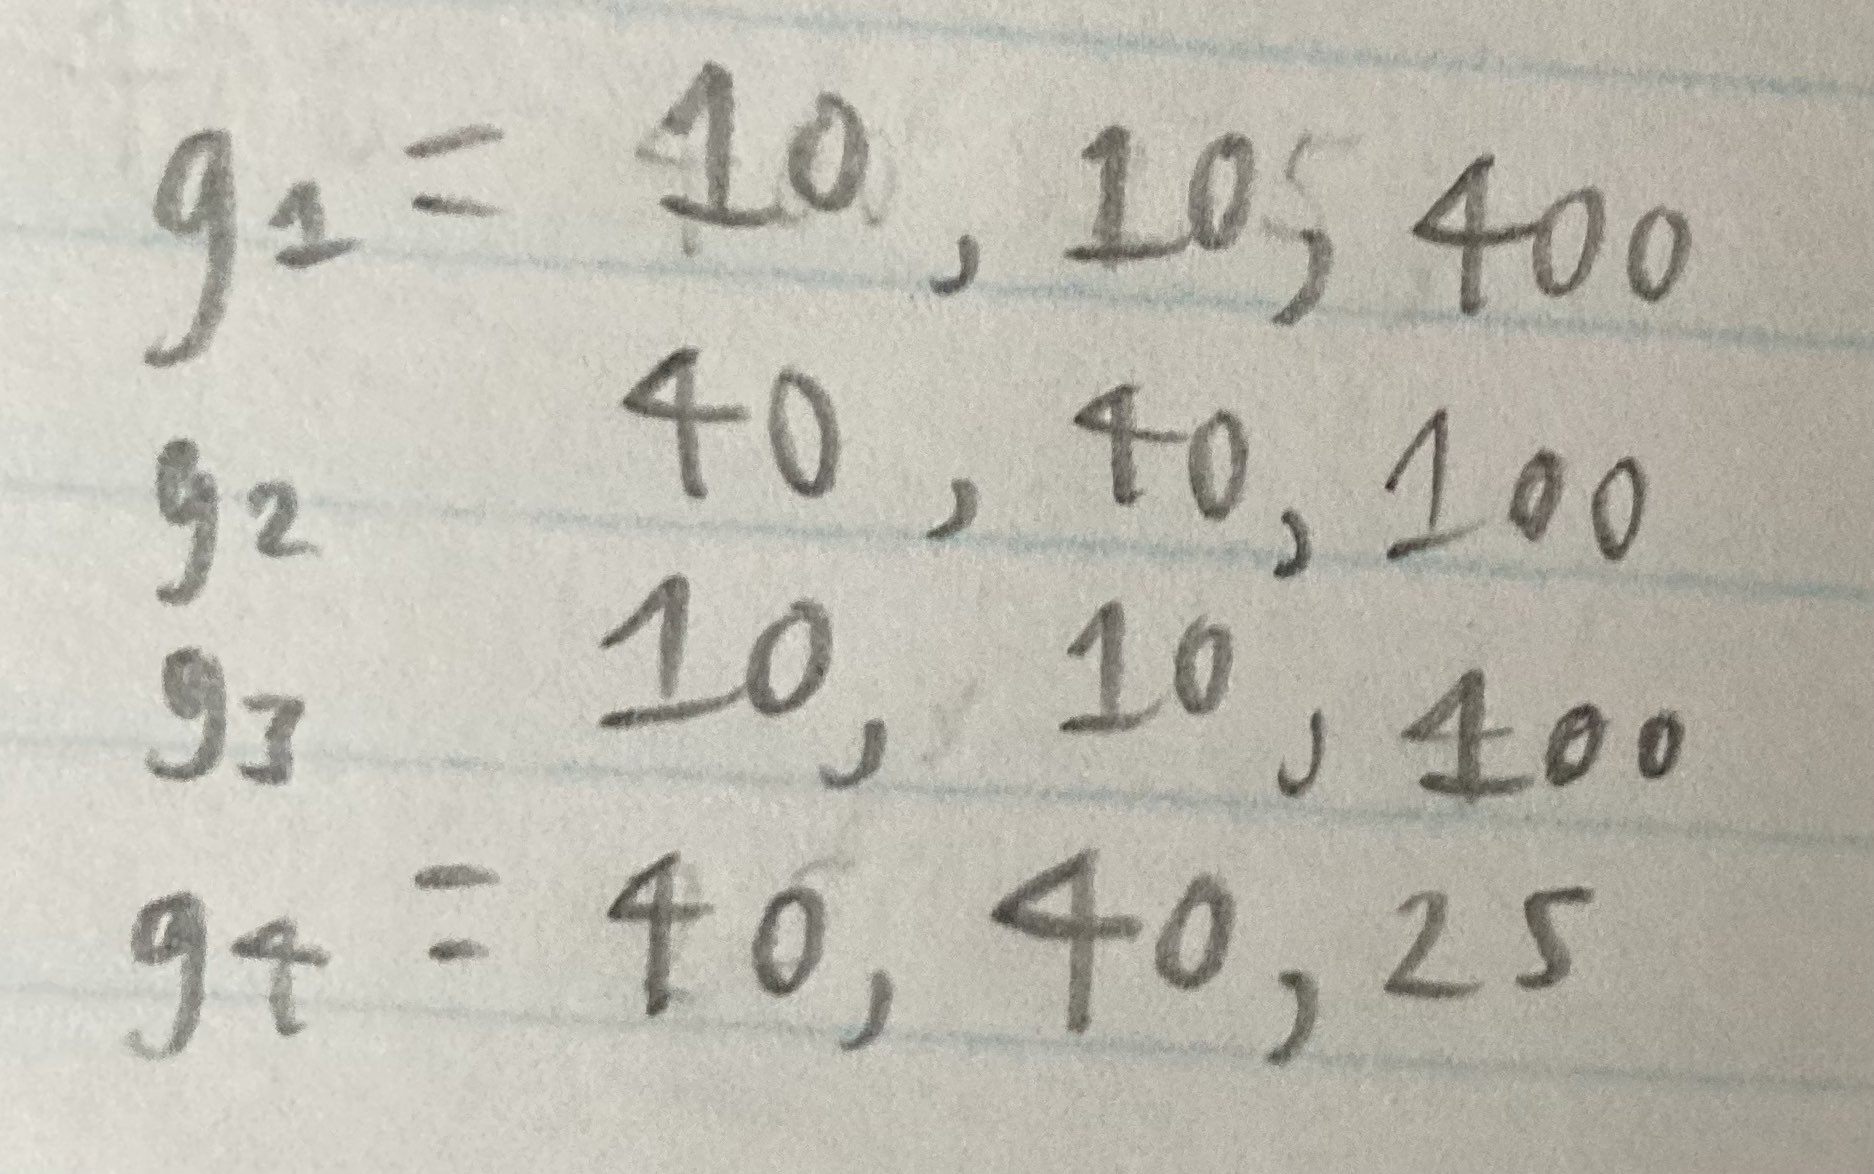 g1 = 10, 10, 400
g2 40, 40, 100
g3 10, 10, 400
g4 = 40, 40, 25